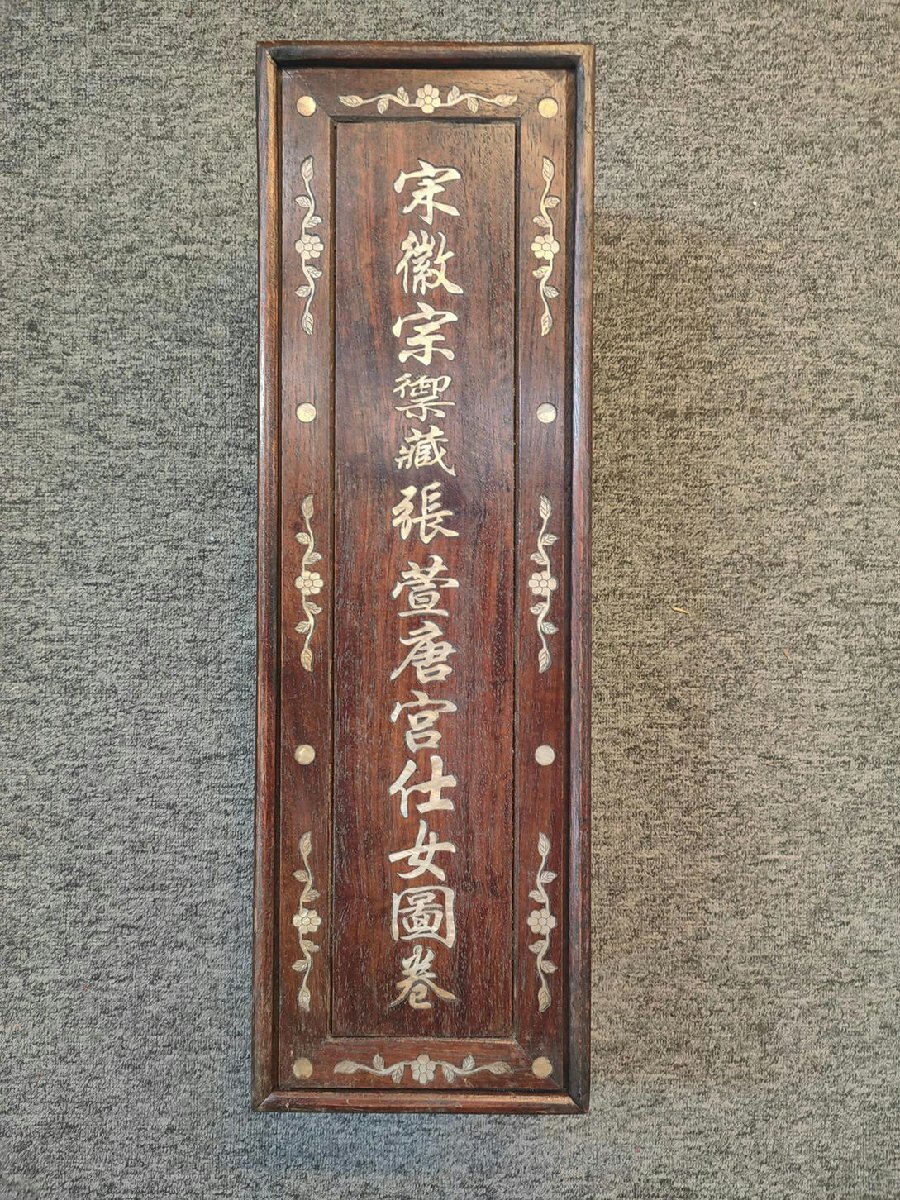 宋徽宗禦藏張萱唐宮仕女圖卷